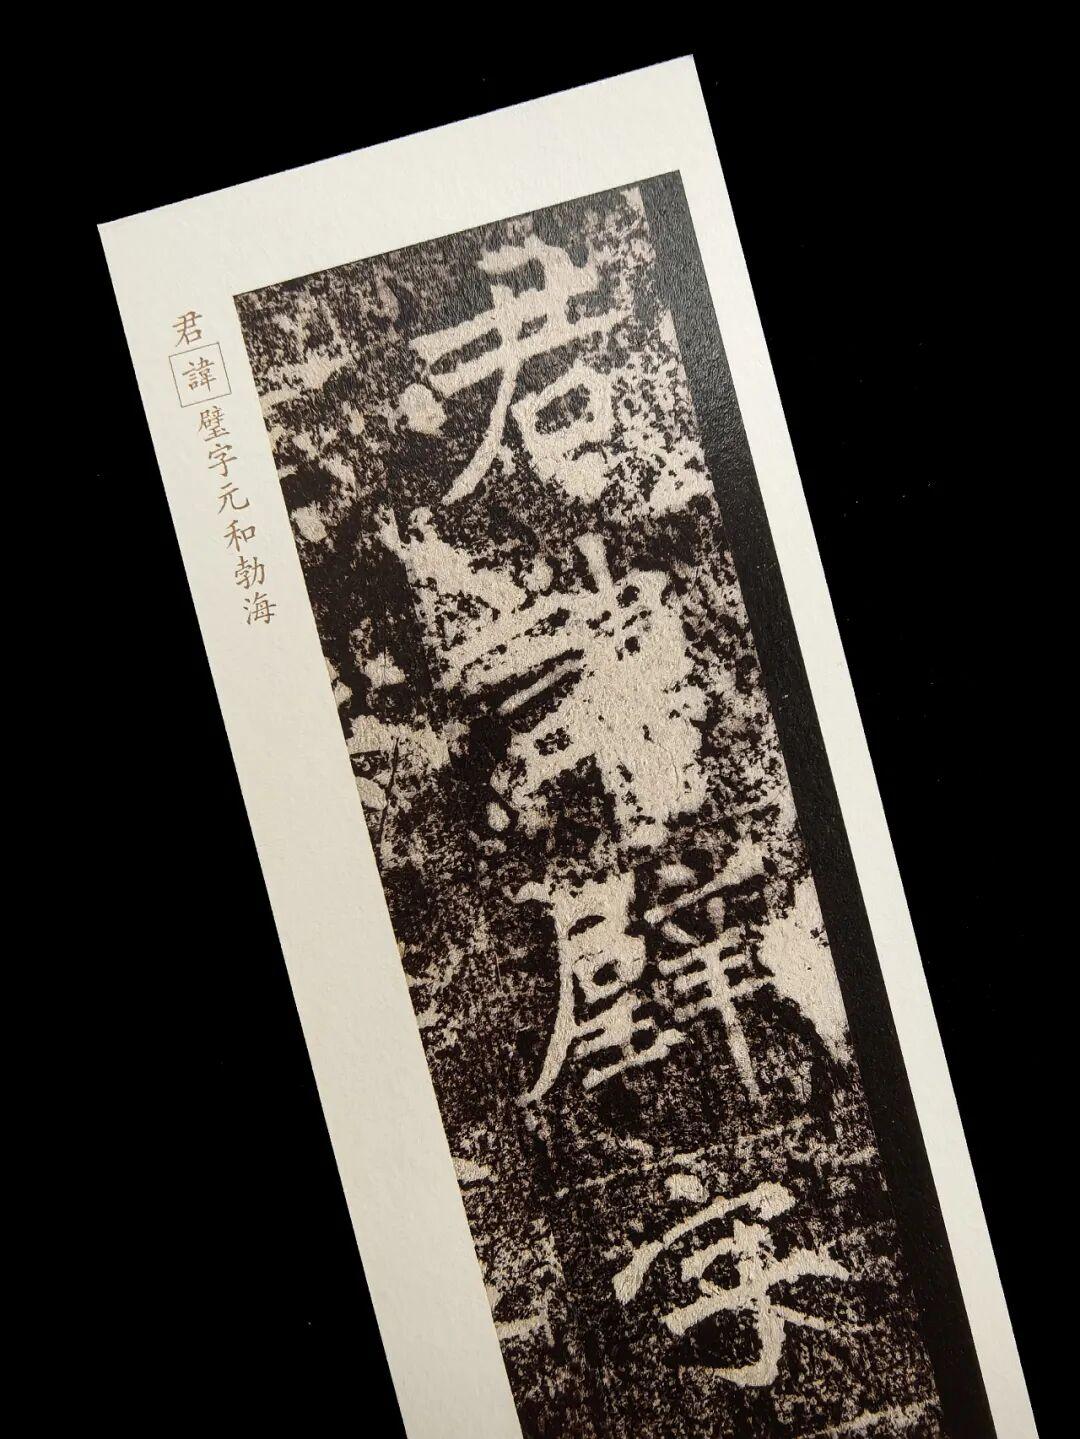 君諱璧字
君諱璧字元和勃海